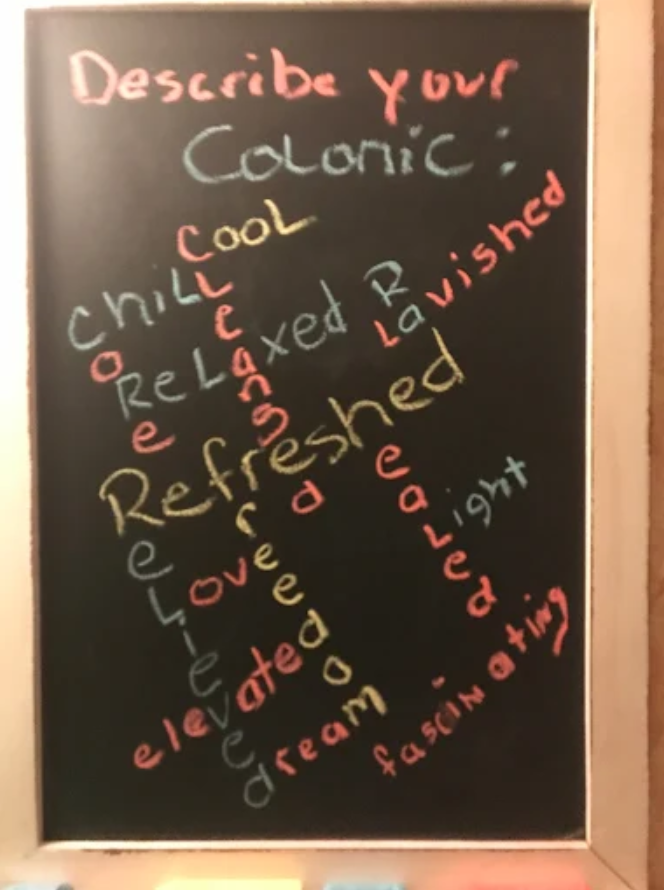 Describe your
Colonic:
CooL
Cleansed
ChiLL
Core
ReLaxed
Rad
Lavished
Refreshed
ReLieved
freedom
heaLed
Light
Love
elevated
dream
fascinating